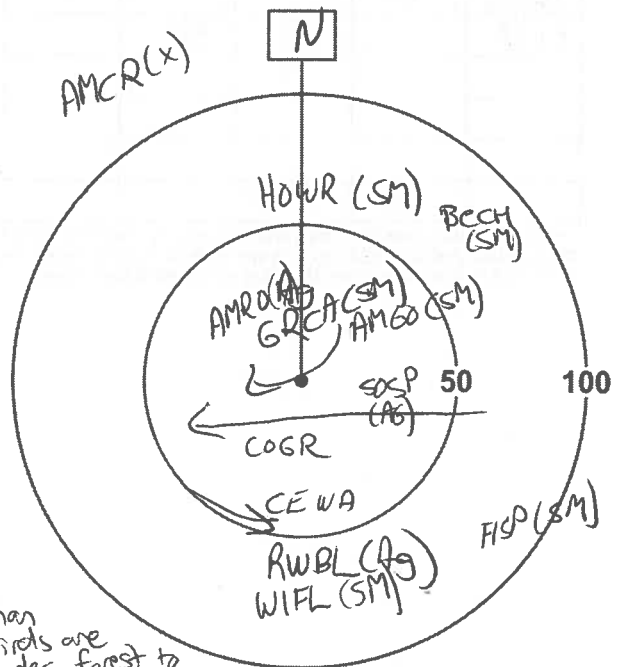 N
AMCR(X)
HOWR (SM)
BCCH
(SM)
AMRO(Ag)
GRCA(SM)
AMGO(SM)
SOSP
(AG)
50
100
COGR
CEWA
FISP(SM)
RWBL(Ag)
WIFL(SM)
birds are
forest to